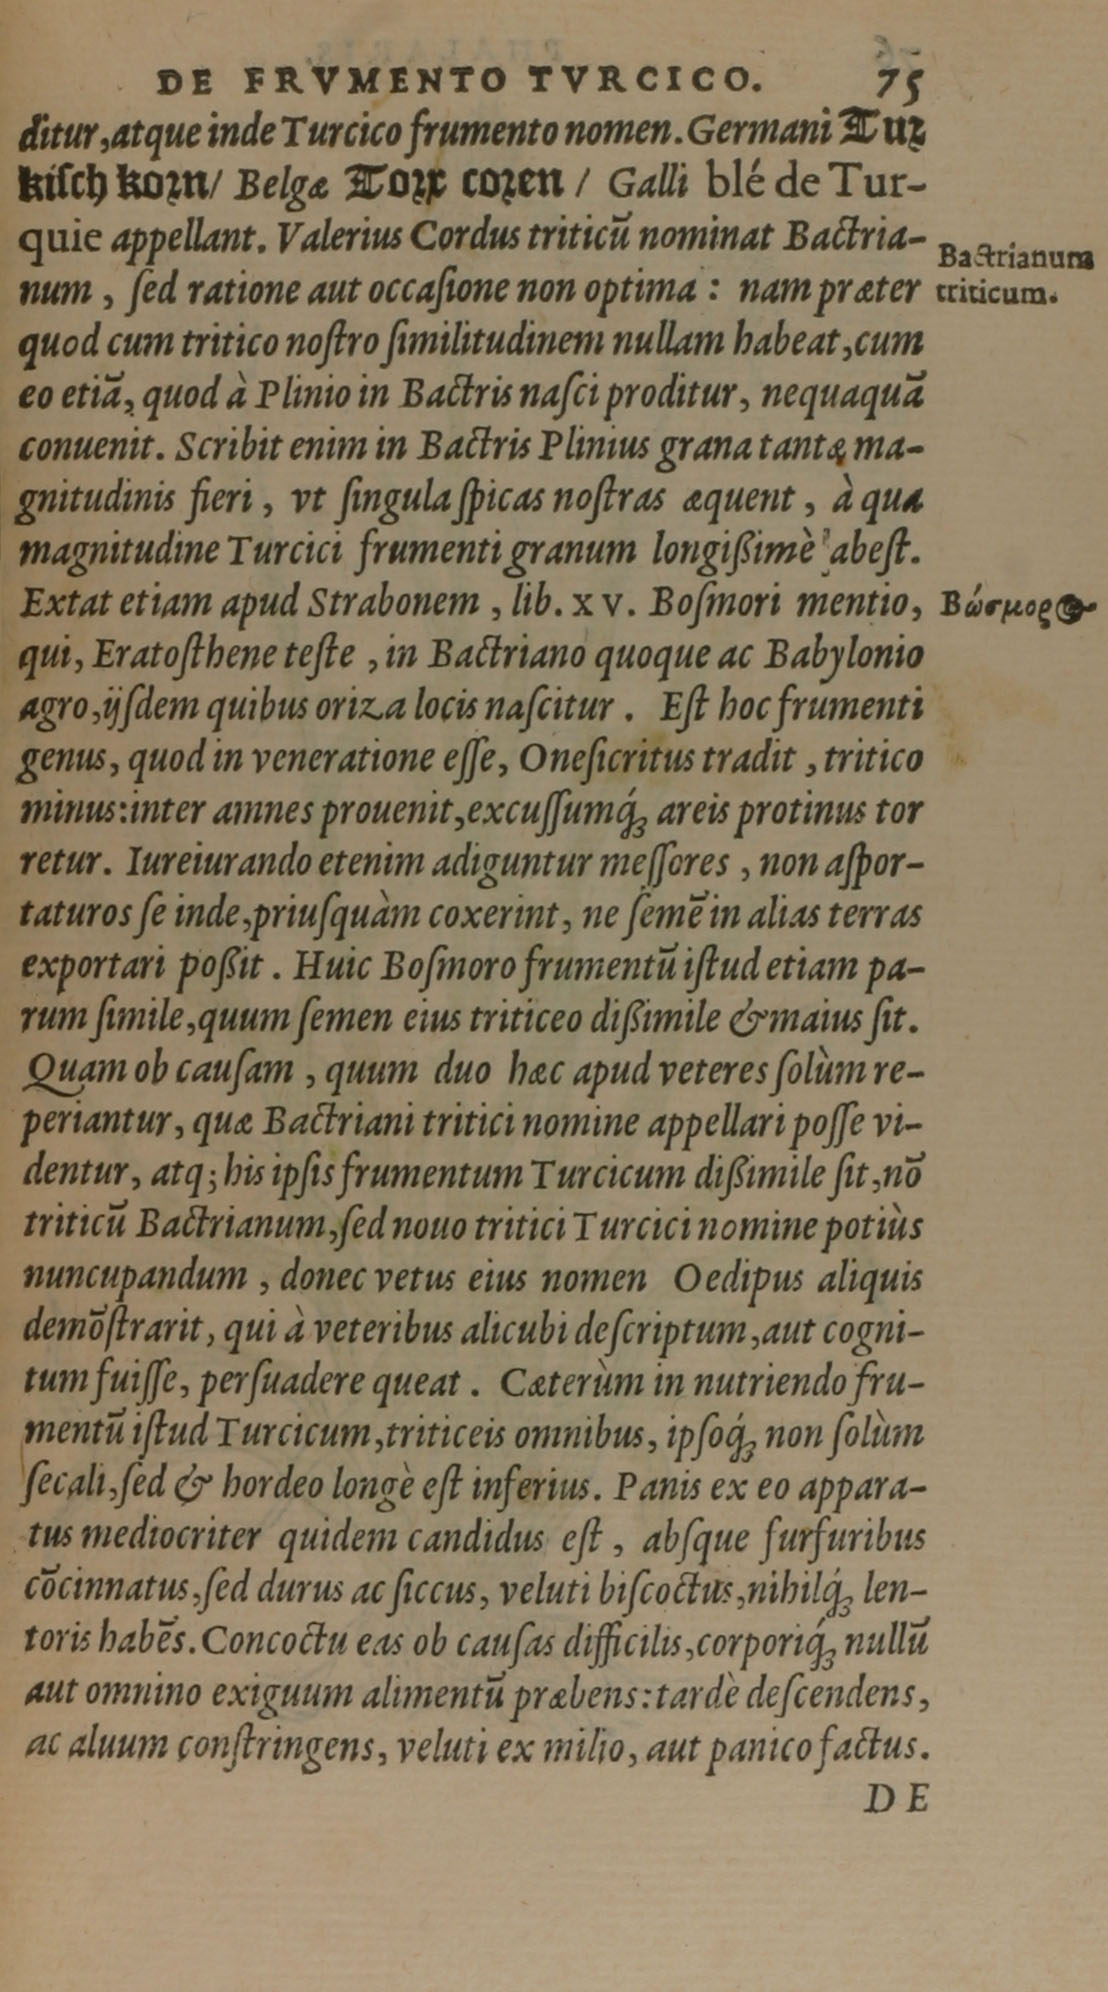 DE FRVMENTO TVRCICO. 75
ditur, atque inde Turcico frumento nomen. Germani Tur
kisch korn/ Belgæ Torx coren / Galli blé de Tur-
quie appellant. Valerius Cordus triticũ nominat Bactria-
Bactrianum
num, ſed ratione aut occaſione non optima : nam præter
triticum.
quod cum tritico noſtro ſimilitudinem nullam habeat, cum
eo etiã, quod à Plinio in Bactris naſci proditur, nequaquã
conuenit. Scribit enim in Bactris Plinius grana tantæ ma-
gnitudinis fieri, vt ſingula ſpicas noſtras æquent, à qua
magnitudine Turcici frumenti granum longißimè abeſt.
Extat etiam apud Strabonem, lib. xv. Boſmori mentio,
Βώσμορος
qui, Eratoſthene teſte, in Bactriano quoque ac Babylonio
agro, ijſdem quibus oriza locis naſcitur. Eſt hoc frumenti
genus, quod in veneratione eſſe, Oneſicritus tradit, tritico
minus: inter amnes prouenit, excuſſumq́ꝫ areis protinus tor
retur. Iureiurando etenim adiguntur meſſores, non aſpor-
taturos ſe inde, priuſquàm coxerint, ne ſemẽ in alias terras
exportari poßit. Huic Boſmoro frumentũ iſtud etiam pa-
rum ſimile, quum ſemen eius triticeo dißimile & maius ſit.
Quam ob cauſam, quum duo hæc apud veteres ſolùm re-
periantur, quæ Bactriani tritici nomine appellari poſſe vi-
dentur, atq; his ipſis frumentum Turcicum dißimile ſit, nõ
triticũ Bactrianum, ſed nouo tritici Turcici nomine potiùs
nuncupandum, donec vetus eius nomen Oedipus aliquis
demõſtrarit, qui à veteribus alicubi deſcriptum, aut cogni-
tum fuiſſe, perſuadere queat. Cæterùm in nutriendo fru-
mentũ iſtud Turcicum, triticeis omnibus, ipſoq́ꝫ non ſolùm
ſecali, ſed & hordeo longè eſt inferius. Panis ex eo appara-
tus mediocriter quidem candidus eſt, abſque furfuribus
cõcinnatus, ſed durus ac ſiccus, veluti biſcoctus, nihilq́ꝫ len-
toris habẽs. Concoctu eas ob cauſas difficilis, corporiq́ꝫ nullũ
aut omnino exiguum alimentũ præbens: tardè deſcendens,
ac aluum conſtringens, veluti ex milio, aut panico factus.
DE